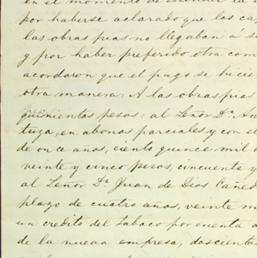 en el momento de
por haberse aclarado que los ca
las obras pias no llegaban á s
y por haber preferido otra com
acordaron que el pago se hicie
otra manera: A las obras pias
quinientos pesos: al Señor Dn. An
tuza, en abonos parciales y con el
de once años, ciento quince mil
veinte y cinco pesos, cincuenta y
al Señor Dn. Juan de Dios Cañed
plazo de cuatro años, veinte m
un credito del tabaco por cuenta
de la nueva empresa, doscientos